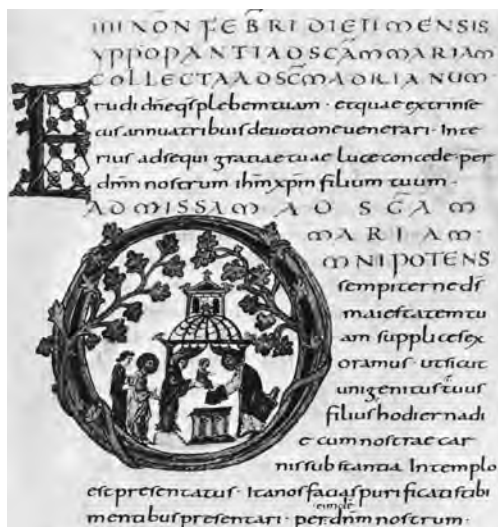 IIII NON FEBRI DIE II MENSIS
YPPOPANTI AD SC̄AM MARIAM
COLLECTA AD SC̄M ADRIANUM
Erudi dn̄e qs plebem tuam · et quae extrinse
cus annua tribuis devotione venerari · Inte
rius adsequi gratiae tuae luce concede · per
dn̄m nostrum ihm̄ xpm̄ filium tuum ·
AD MISSAM AD SCAM
MARIAM ·
OMNIPOTENS
sempiterne ds̄
maiestatem tu
am supplices ex
oramus · ut sicut
unigenitus tuus
filius hodierna di
e cum nostrae car
nis substantia In templo
est presentatus · Ita nos facias purificatis tibi
mentibus presentari · per dn̄m nostrum ·